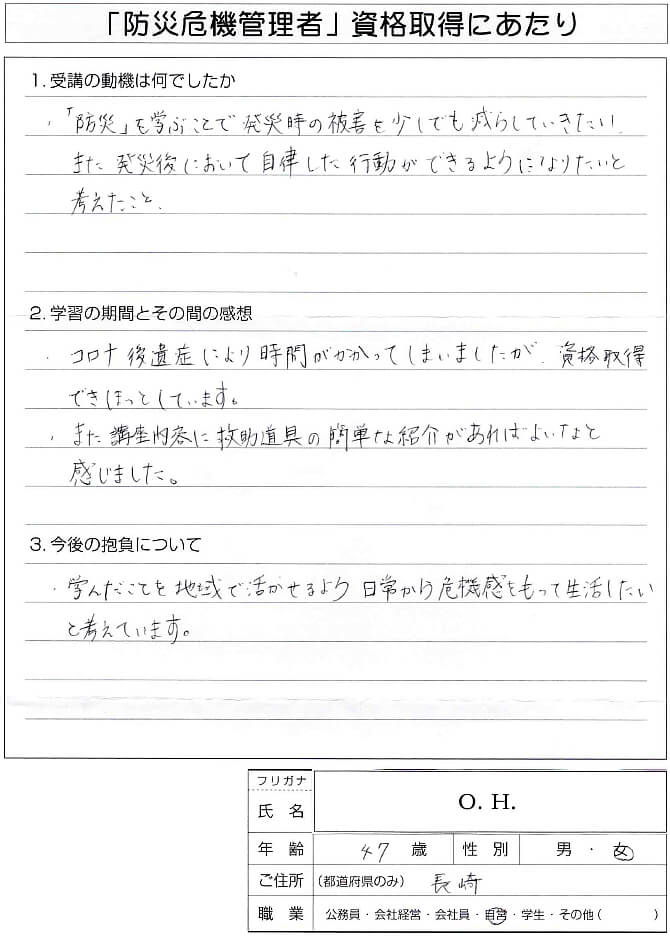 「防災危機管理者」資格取得にあたり
1. 受講の動機は何でしたか
・「防災」を学ぶことで発災時の被害を少しでも減らしていきたい、
また発災後において自律した行動ができるようになりたいと
考えたこと、
2. 学習の期間とその間の感想
・コロナ後遺症により時間がかかってしまいましたが、資格取得
できほっとしています。
・また講座内容に救助道具の簡単な紹介があればよいなと
感じました。
3. 今後の抱負について
・学んだことを地域で活かせるよう日常から危機感をもって生活したい
と考えています。
フリガナ
氏名 O. H.
年齢 47 歳 性別 男・女
ご住所 (都道府県のみ) 長崎
職業 公務員・会社経営・会社員・自営・学生・その他( )